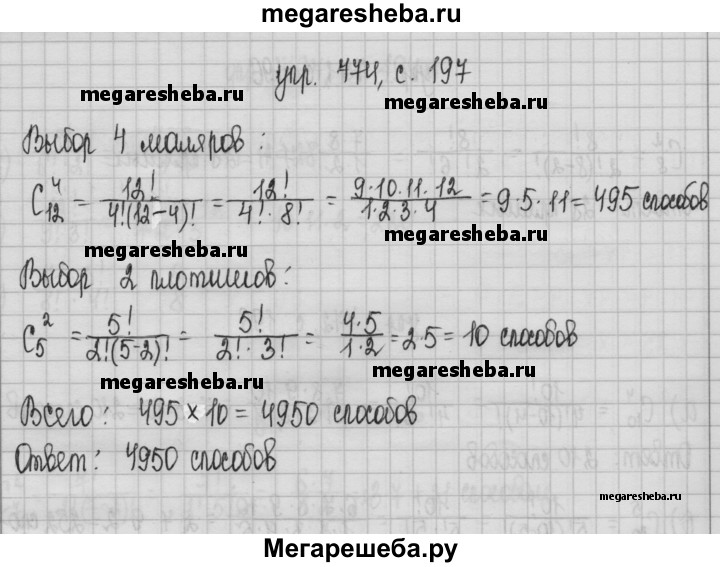 megaresheba.ru
упр. 774, с. 197
megaresheba.ru megaresheba.ru
Выбор 4 маляров :
C₁₂⁴ = 12!/4!(12-4)! = 12!/4! · 8! = 9·10·11·12/1·2·3·4 = 9·5·11 = 495 способов
megaresheba.ru megaresheba.ru
Выбор 2 плотников :
C₅² = 5!/2!(5-2)! = 5!/2! · 3! = 4·5/1·2 = 2·5 = 10 способов
megaresheba.ru megaresheba.ru
Всего : 495 × 10 = 4950 способов
Ответ : 4950 способов
megaresheba.ru
Мегарешеба.ру